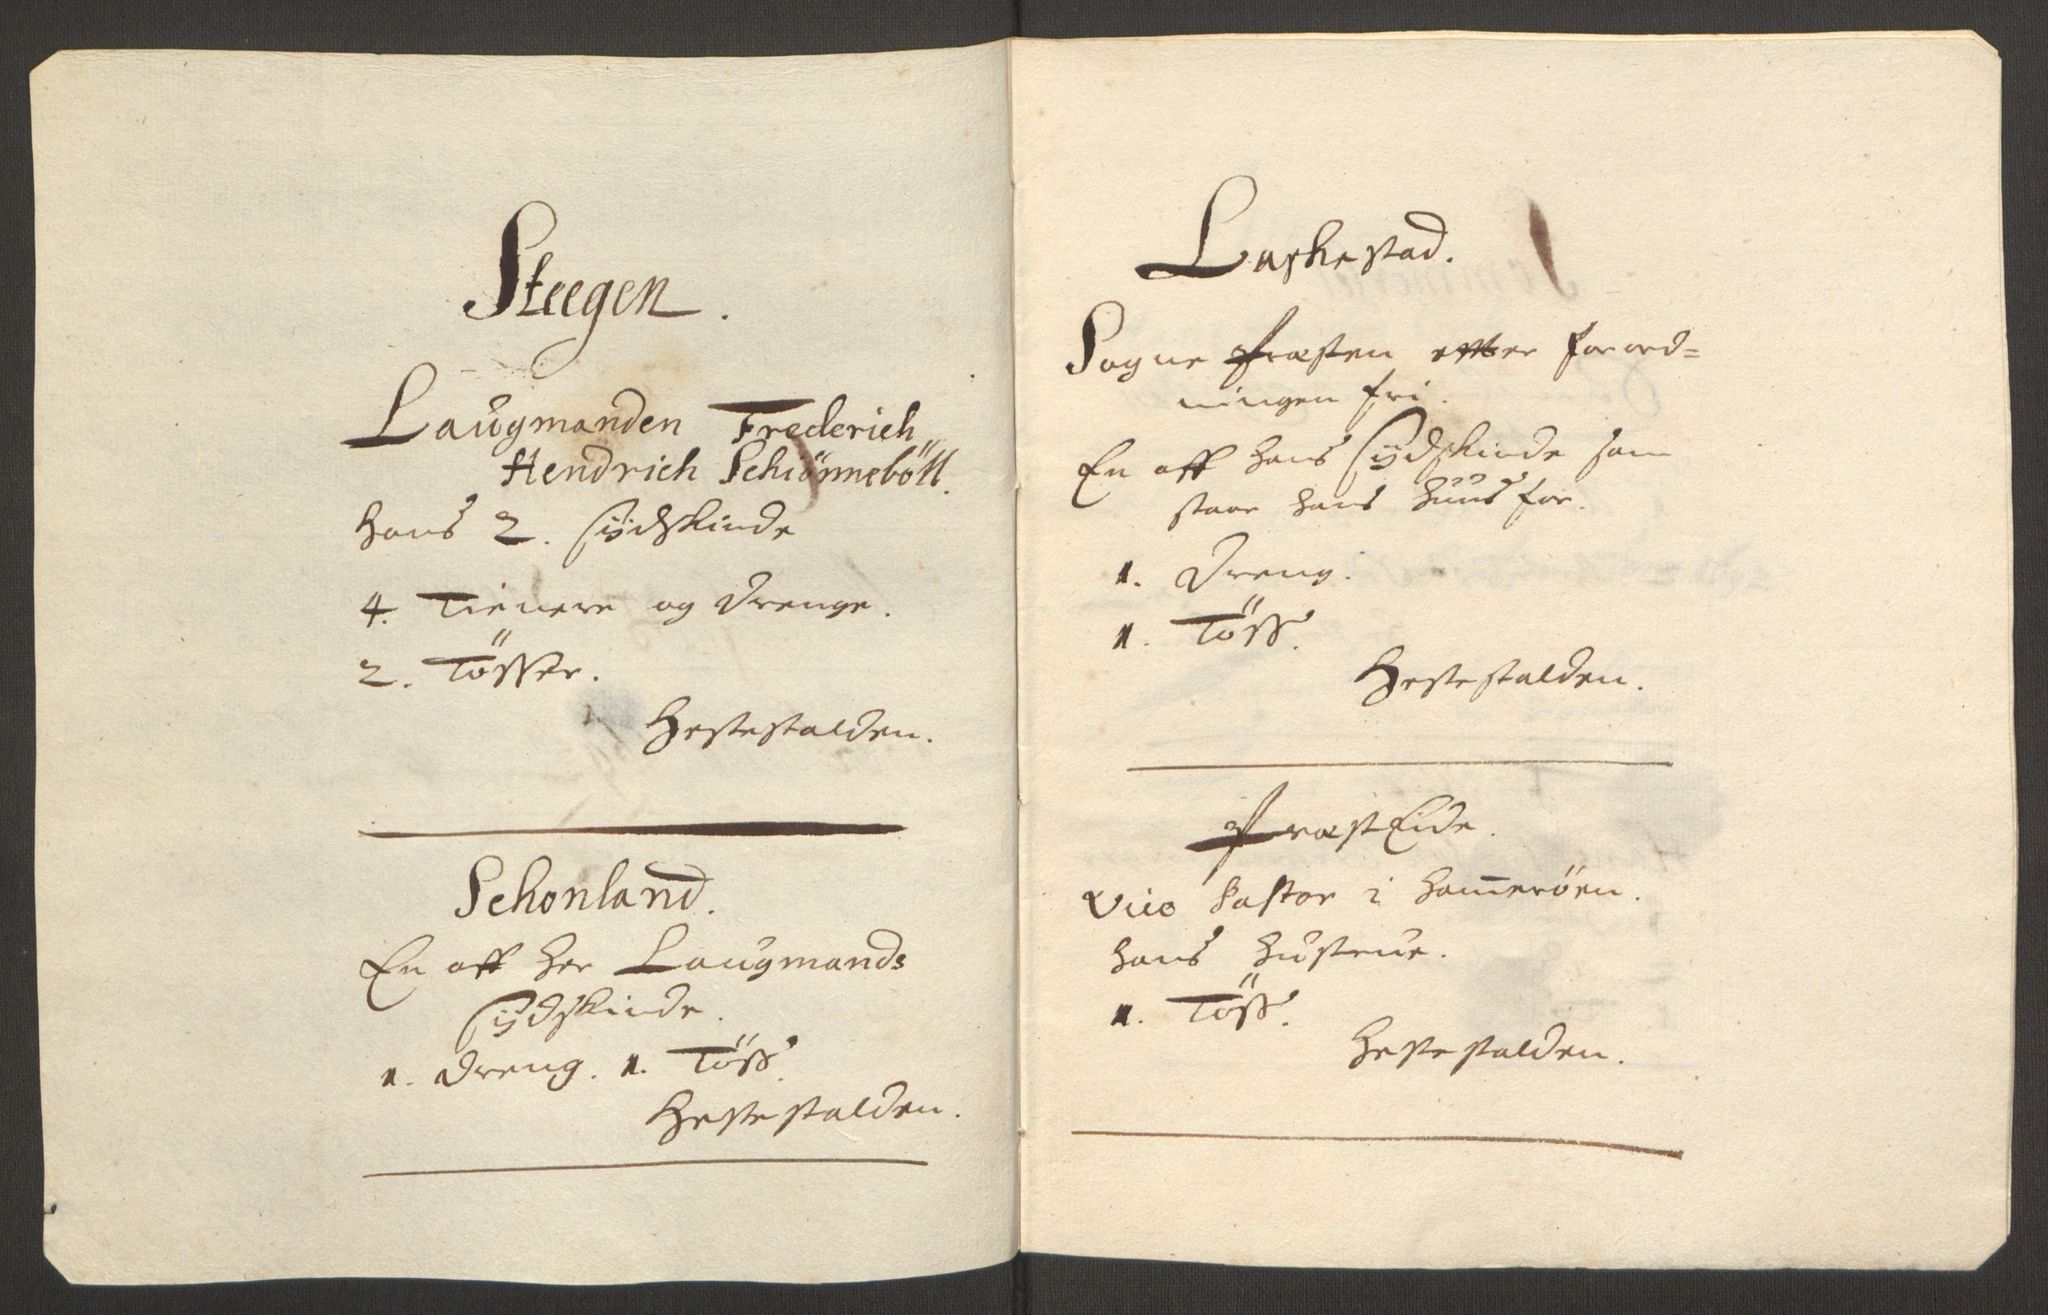 Steegen.
Laugmanden Frederich
Hendrich Schiönneböll.
Hans 2. Sydskinde
4. Tienere og Drenge.
2. Tösser.
Hestestalden.
Schonland.
En aff her Laugmands
Sydskinde.
1. Dreng. 1. Töss.
Hestestalden.
Laskestad.
Sogne Præsten effter Forord=
ningen fri.
En aff hans Sydskinde som
staar hans Huus for.
1. Dreng.
1. Töss.
Hestestalden.
PræstEide.
Vice Pastor i Hameröen.
Hans Hustrue.
1. Töss.
Hestestalden.